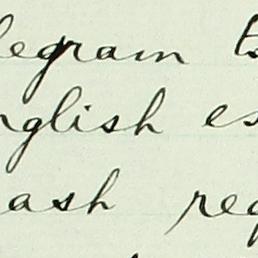 legram
nglish es
ash req